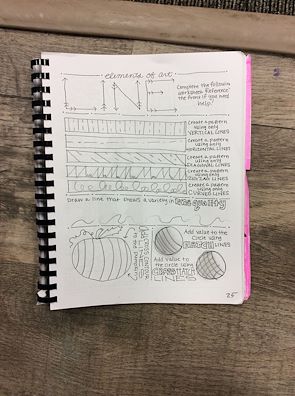 elements of art
LINE
Complete the following
worksheet. Reference
the front if you need
help!
Create a pattern
using only
VERTICAL LINES
Create a pattern
using only
HORIZONTAL LINES
Create a pattern
using only
DIAGONAL LINES
Create a pattern
using only
ZIGZAG LINES
Create a pattern
using only
CURVED LINES
Draw a line that shows a variety in line quality
Add cross contour
lines to
the pumpkin
Add value to the
circle using
HATCH LINES
Add value to
the circle using
CROSS HATCH
LINES
25